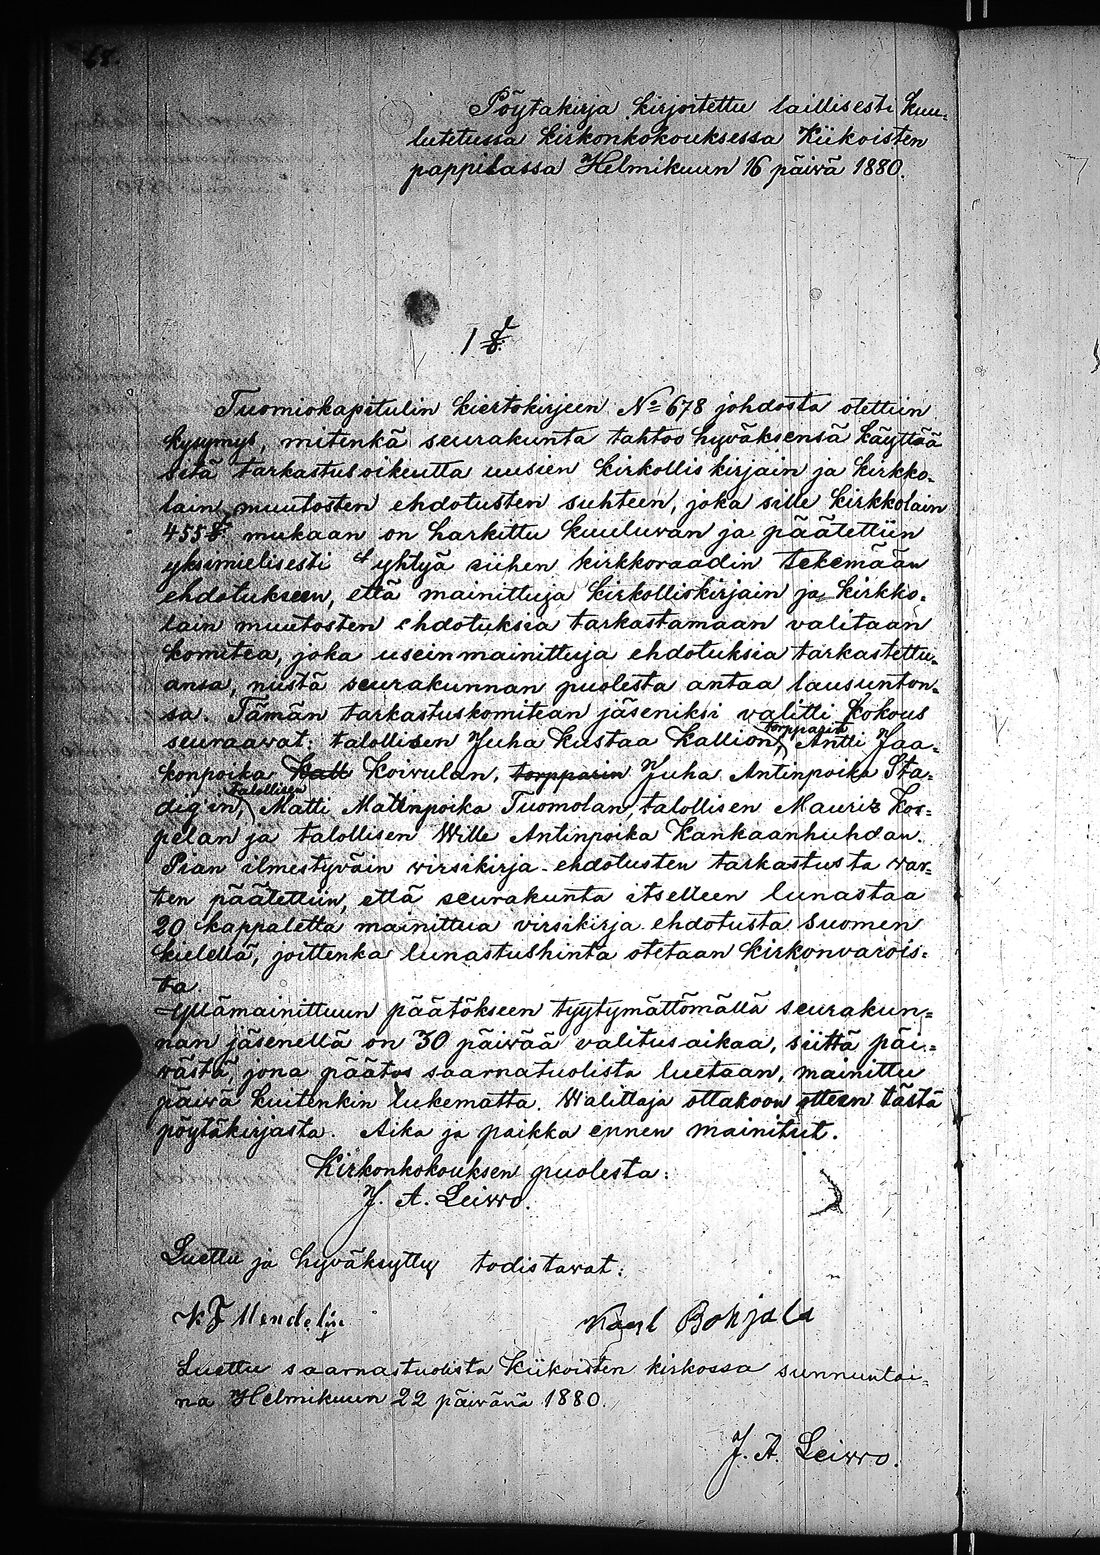 68.
Pöytäkirja kirjoitettu laillisesti kuu-
lutetussa kirkonkokouksessa Kiikoisten
pappilassa Helmikuun 16 päivä 1880.
1 §.
Tuomiokapitulin kiertokirjeen No 678 johdosta otettiin
kysymys, mitenkä seurakunta tahtoo hyväksensä käyttää
sitä tarkastusoikeutta uusien kirkolliskirjain ja kirkko-
lain muutosten ehdotusten suhteen, joka sille kirkkolain
455 § mukaan on harkittu kuuluvan ja päätettiin
yksimielisesti yhtyä siihen kirkkoraadin tekemään
ehdotukseen, että mainittuja kirkolliskirjain ja kirkko-
lain muutosten ehdotuksia tarkastamaan valitaan
komitea, joka useinmainittuja ehdotuksia tarkastettu-
ansa, niistä seurakunnan puolesta antaa lausunton-
sa. Tämän tarkastuskomitean jäseniksi valitti kokous
torpparin
seuraawat: talollisen Juha Kustaa Kallion, Antti Jaa-
konpoika Koivulan, torpparin Juha Antinpoika Sta-
talollisen
dig'in, Matti Matinpoika Tuomolan, talollisen Mauriz Kos-
pelan ja talollisen Wille Antinpoika Kankaanhuhdan.
Pian ilmestyväin virsikirja-ehdotusten tarkastusta war-
ten päätettiin, että seurakunta itselleen lunastaa
20 kappaletta mainittua virsikirja ehdotusta suomen
kielellä, joittenka lunastushinta otetaan kirkonvarois-
ta.
Yllämainittuun päätökseen tyytymättömällä seurakun-
nan jäsenellä on 30 päivää valitusaikaa, siittä päi-
västä, jona päätös saarnatuolista luetaan, mainittu
päivä kuitenkin lukematta. Walittaja ottakoon otteen tästä
pöytäkirjasta. Aika ja paikka ennen mainitut.
Kirkonkokouksen puolesta:
J. A. Leivvo.
Luettu ja hyväksytty todistavat:
K F Mendelin
Karl Bohjala
Luettu saarnastuolista Kiikoisten kirkossa sunnuntai-
na Helmikuun 22 päivänä 1880.
J. A. Leivvo.